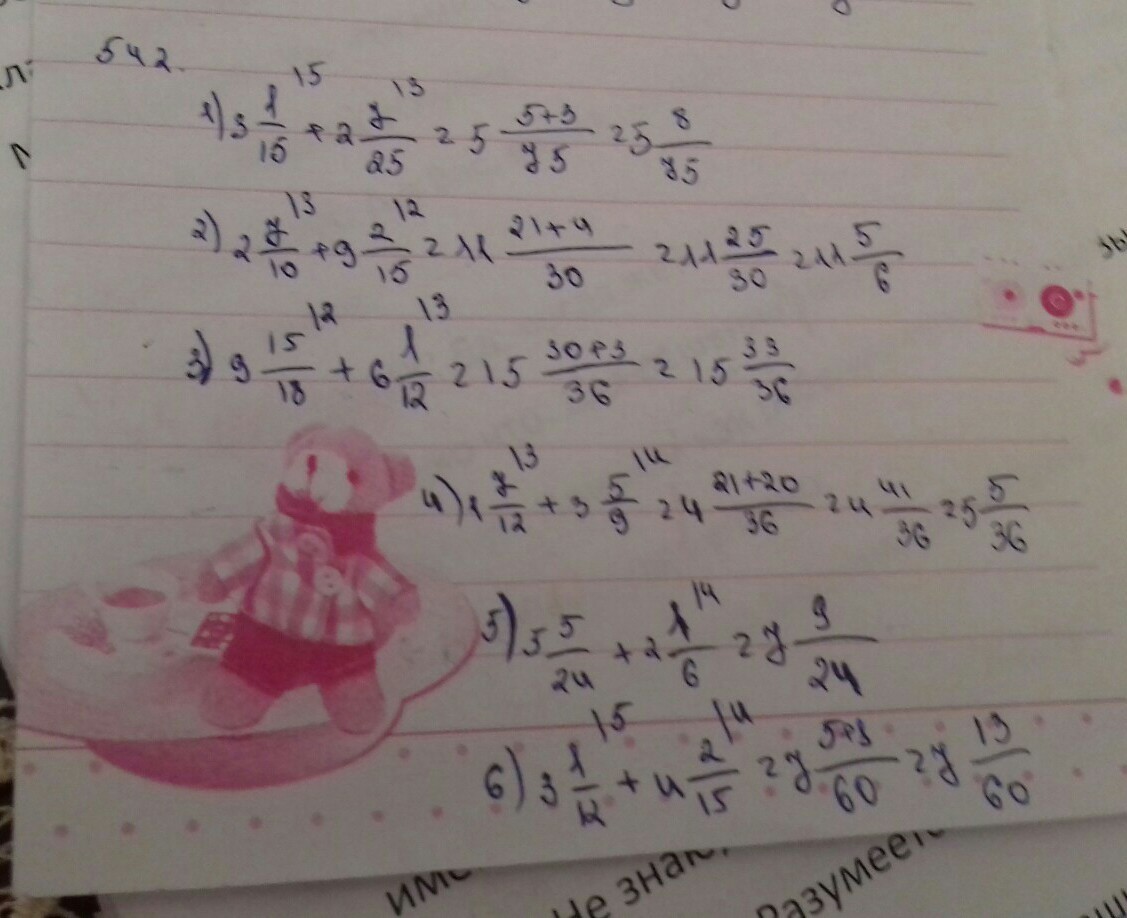 542.
1) 3 1/15 \5 + 2 7/25 \3 = 5 5+3/75 = 5 8/75
2) 2 7/10 \3 + 9 2/15 \2 = 11 21+4/30 = 11 25/30 = 11 5/6
3) 9 15/18 \2 + 6 1/12 \3 = 15 30+3/36 = 15 33/36
4) 1 7/12 \3 + 3 5/9 \4 = 4 21+20/36 = 4 41/36 = 5 5/36
5) 5 5/24 + 2 1/6 \4 = 7 9/24
6) 3 1/12 \5 + 4 2/15 \4 = 7 5+8/60 = 7 13/60
Не знаю,
разумеет